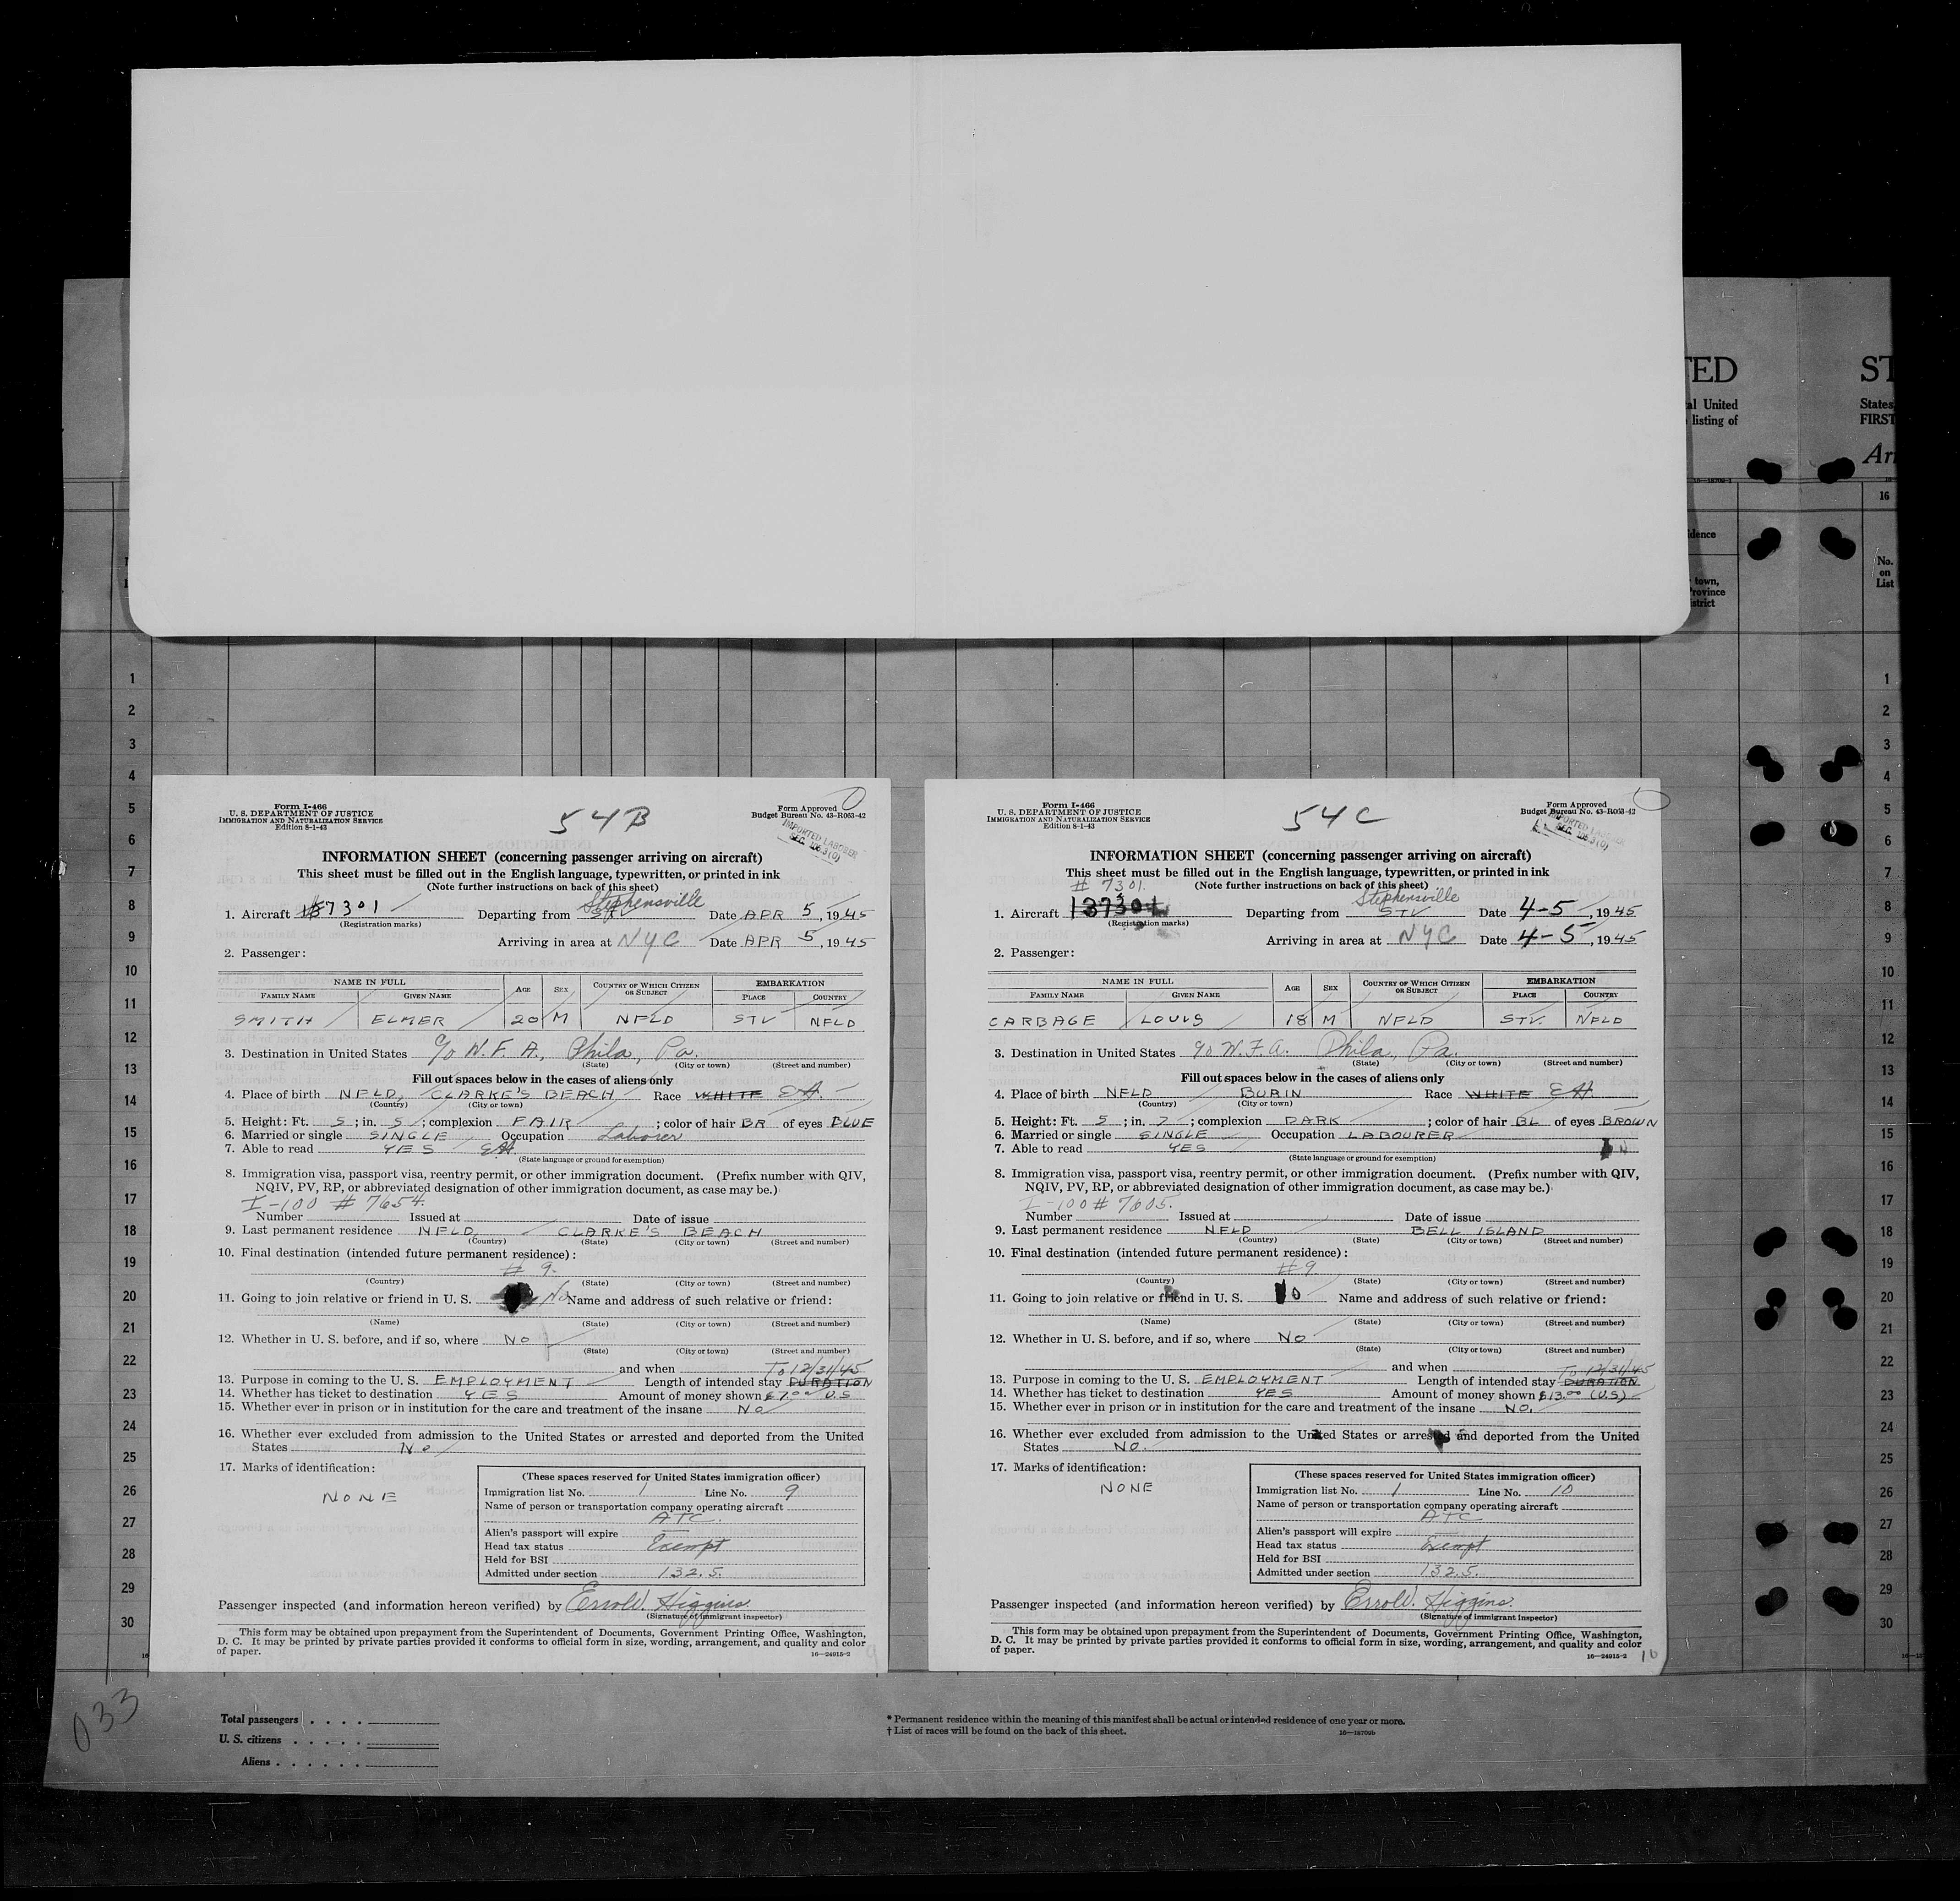 TED
al United
listing of
ST
States
FIRST
Ar
16
idence
town,
Province
istrict
No.
on
List
Form I-466
U. S. DEPARTMENT OF JUSTICE
IMMIGRATION AND NATURALIZATION SERVICE
Edition 8-1-43
54B
Form Approved
Budget Bureau No. 43-R063-42
IMPORTED LABORER
INFORMATION SHEET (concerning passenger arriving on aircraft)
This sheet must be filled out in the English language, typewritten, or printed in ink
(Note further instructions on back of this sheet)
Stephensville
1. Aircraft #7301 Departing from STV Date APR 5, 1945
(Registration marks)
Arriving in area at NYC Date APR 5, 1945
2. Passenger:
NAME IN FULL AGE SEX COUNTRY OF WHICH CITIZEN OR SUBJECT EMBARKATION
FAMILY NAME GIVEN NAME PLACE COUNTRY
SMITH ELMER 20 M NFLD STV NFLD
3. Destination in United States c/o W. F. A., Phila, Pa.
(State) (City or town) (Street and number)
Fill out spaces below in the cases of aliens only
4. Place of birth NFLD, CLARKE'S BEACH Race WHITE
(Country) (City or town)
5. Height: Ft. 5; in. 5; complexion FAIR; color of hair BR of eyes BLUE
6. Married or single SINGLE Occupation Laborer
7. Able to read YES
(State language or ground for exemption)
8. Immigration visa, passport visa, reentry permit, or other immigration document. (Prefix number with QIV,
NQIV, PV, RP, or abbreviated designation of other immigration document, as case may be.)
I-100 # 7654.
Number Issued at Date of issue
9. Last permanent residence NFLD, CLARKE'S BEACH
(Country) (State) (City or town) (Street and number)
10. Final destination (intended future permanent residence):
# 9.
(Country) (State) (City or town) (Street and number)
11. Going to join relative or friend in U. S. No Name and address of such relative or friend:
(Name) (State) (City or town) (Street and number)
12. Whether in U. S. before, and if so, where NO
(State) (City or town) (Street and number)
and when To 12/31/45
13. Purpose in coming to the U. S. EMPLOYMENT Length of intended stay DURATION
14. Whether has ticket to destination YES Amount of money shown $7.00 U.S
15. Whether ever in prison or in institution for the care and treatment of the insane No
16. Whether ever excluded from admission to the United States or arrested and deported from the United
States No
17. Marks of identification:
NONE
(These spaces reserved for United States immigration officer)
Immigration list No. 1 Line No. 9
Name of person or transportation company operating aircraft
ATC.
Alien's passport will expire
Head tax status Exempt
Held for BSI
Admitted under section 132.5.
Passenger inspected (and information hereon verified) by Errol W. Higgins
(Signature of immigrant inspector)
This form may be obtained upon prepayment from the Superintendent of Documents, Government Printing Office, Washington,
D. C. It may be printed by private parties provided it conforms to official form in size, wording, arrangement, and quality and color
of paper.
16—24915-2
9
Form I-466
U. S. DEPARTMENT OF JUSTICE
IMMIGRATION AND NATURALIZATION SERVICE
Edition 8-1-43
54C
Form Approved
Budget Bureau No. 43-R063-42
IMPORTED LABORER
INFORMATION SHEET (concerning passenger arriving on aircraft)
This sheet must be filled out in the English language, typewritten, or printed in ink
(Note further instructions on back of this sheet)
# 7301. Stephensville
1. Aircraft 137301 Departing from STV Date 4-5, 1945
(Registration marks)
Arriving in area at NYC Date 4-5, 1945
2. Passenger:
NAME IN FULL AGE SEX COUNTRY OF WHICH CITIZEN OR SUBJECT EMBARKATION
FAMILY NAME GIVEN NAME PLACE COUNTRY
CARBAGE LOUIS 18 M NFLD STV. NFLD
3. Destination in United States c/o W. F. A. Phila, Pa.
(State) (City or town) (Street and number)
Fill out spaces below in the cases of aliens only
4. Place of birth NFLD BURIN Race WHITE
(Country) (City or town)
5. Height: Ft. 5; in. 7; complexion DARK; color of hair BL of eyes BROWN
6. Married or single SINGLE Occupation LABOURER
7. Able to read YES
(State language or ground for exemption)
8. Immigration visa, passport visa, reentry permit, or other immigration document. (Prefix number with QIV,
NQIV, PV, RP, or abbreviated designation of other immigration document, as case may be.)
I-100 # 7605.
Number Issued at Date of issue
9. Last permanent residence NFLD BELL ISLAND
(Country) (State) (City or town) (Street and number)
10. Final destination (intended future permanent residence):
#9
(Country) (State) (City or town) (Street and number)
11. Going to join relative or friend in U. S. Name and address of such relative or friend:
(Name) (State) (City or town) (Street and number)
12. Whether in U. S. before, and if so, where NO
(State) (City or town) (Street and number)
and when To 12/31/45
13. Purpose in coming to the U. S. EMPLOYMENT Length of intended stay DURATION
14. Whether has ticket to destination YES Amount of money shown $13.00 (U.S)
15. Whether ever in prison or in institution for the care and treatment of the insane NO.
16. Whether ever excluded from admission to the United States or arrested and deported from the United
States NO.
17. Marks of identification:
NONE
(These spaces reserved for United States immigration officer)
Immigration list No. 1 Line No. 10
Name of person or transportation company operating aircraft
ATC
Alien's passport will expire
Head tax status Exempt
Held for BSI
Admitted under section 132.5.
Passenger inspected (and information hereon verified) by Errol W. Higgins
(Signature of immigrant inspector)
This form may be obtained upon prepayment from the Superintendent of Documents, Government Printing Office, Washington,
D. C. It may be printed by private parties provided it conforms to official form in size, wording, arrangement, and quality and color
of paper.
16—24915-2
10
1
2
3
4
5
6
7
8
9
10
11
12
13
14
15
16
17
18
19
20
21
22
23
24
25
26
27
28
29
30
1
2
3
4
5
6
7
8
9
10
11
12
13
14
15
16
17
18
19
20
21
22
23
24
25
26
27
28
29
30
033
Total passengers . . . .
U. S. citizens . . . . .
Aliens . . . . . .
* Permanent residence within the meaning of this manifest shall be actual or intended residence of one year or more.
† List of races will be found on the back of this sheet.